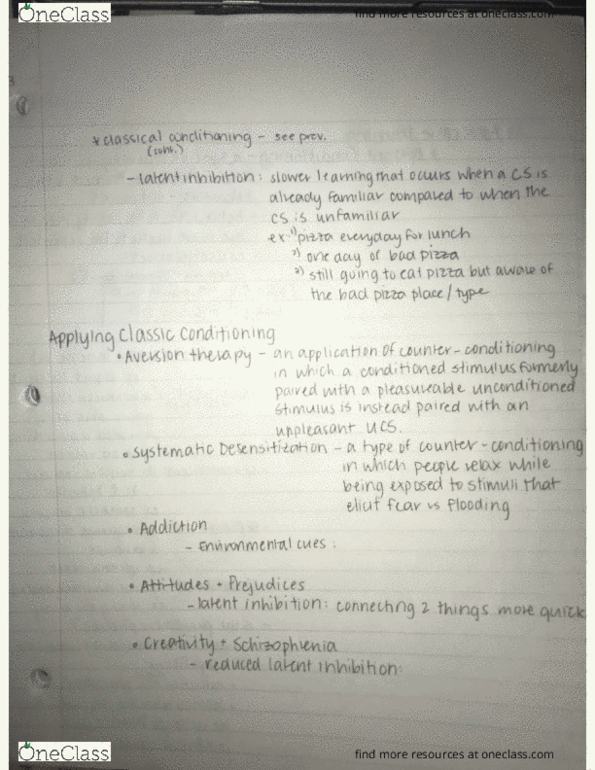 OneClass
find more resources at oneclass.com
3
* classical conditioning - see prev.
(cont.)
- latent inhibition: slower learning that occurs when a CS is
already familiar compared to when the
CS is unfamiliar
ex: 1) pizza everyday for lunch
2) one day of bad pizza
3) still going to eat pizza but aware of
the bad pizza place / type
Applying Classic Conditioning
• Aversion therapy - an application of counter-conditioning
in which a conditioned stimulus formerly
paired with a pleasureable unconditioned
stimulus is instead paired with an
unpleasant UCS.
• Systematic Desensitization - a type of counter-conditioning
in which people relax while
being exposed to stimuli that
elicit fear vs flooding
• Addiction
- Environmental cues:
• Attitudes + Prejudices
- latent inhibition: connecting 2 things more quick
• Creativity + Schizophrenia
- reduced latent inhibition:
OneClass
find more resources at oneclass.com